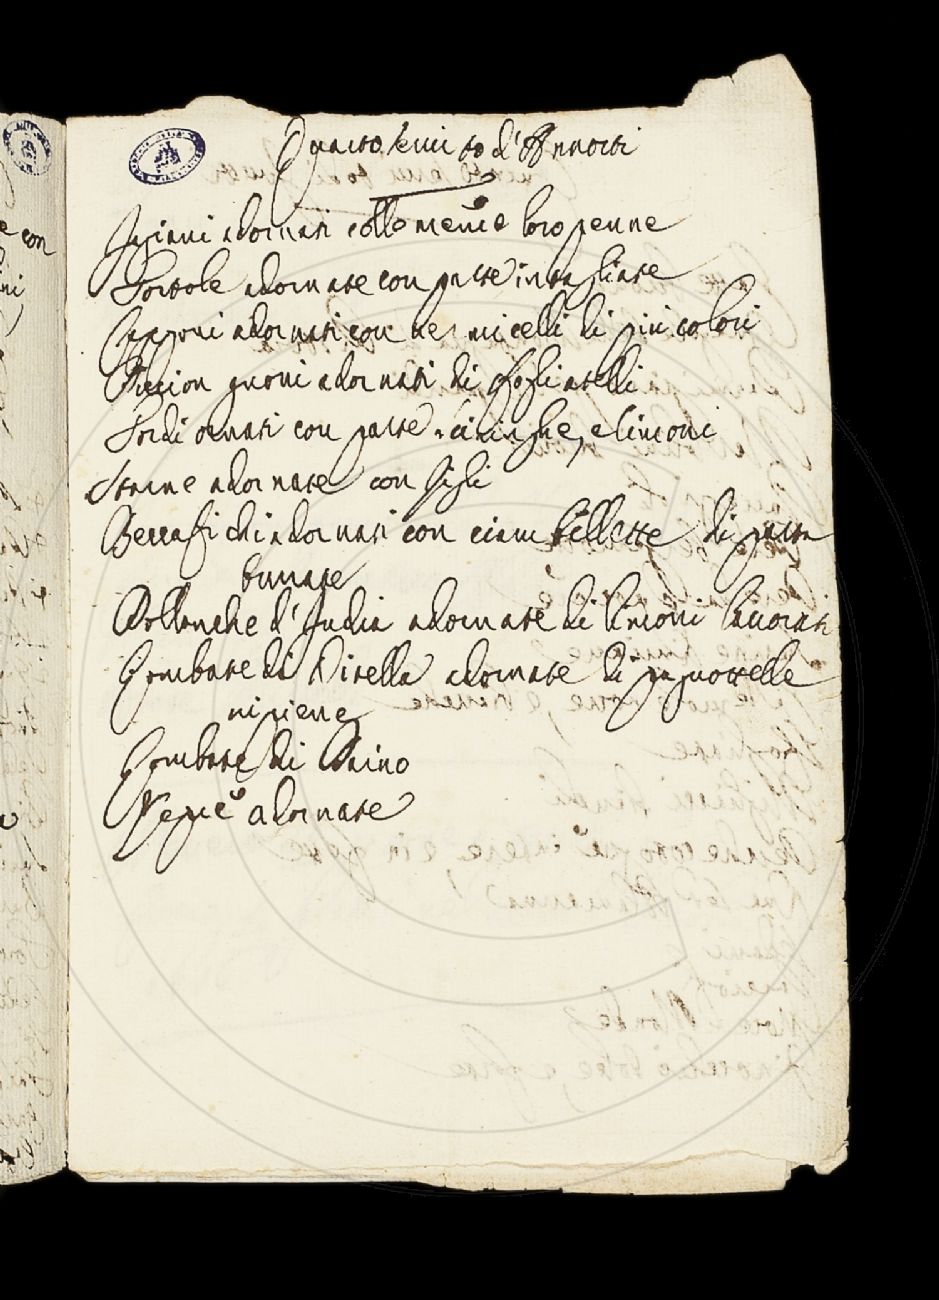 Quarto servito d'Arrosti
Fagiani adornati colle mem.e loro penne
Tortole adornate con paste intagliate
Capponi adornati con vermicelli di più colori
Piccion grossi adornati di sfogliatelli
Tordi ornati con paste siringhe, e limoni
Starne adornate con Gigli
Beccafichi adornati con ciambellette di pasta
Pollanche d'India adornate di limoni lavorati
Lombate di Vitella adornate di pagnottelle
ripiene
Lombate di Daino
Lepre adornate